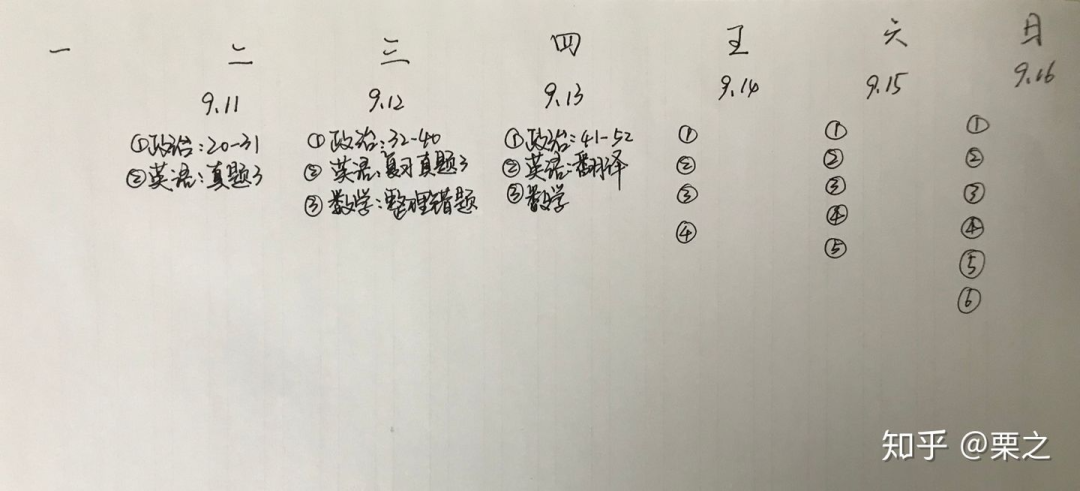 一 二 三 四 五 六 日
9.11 9.12 9.13 9.14 9.15 9.16
①政治:20-31
②英语:真题3
①政治:32-40
②英语:复习真题3
③数学:整理错题
①政治:41-52
②英语:翻译
③数学
①
②
③
④
①
②
③
④
⑤
①
②
③
④
⑤
⑥
知乎 @栗之